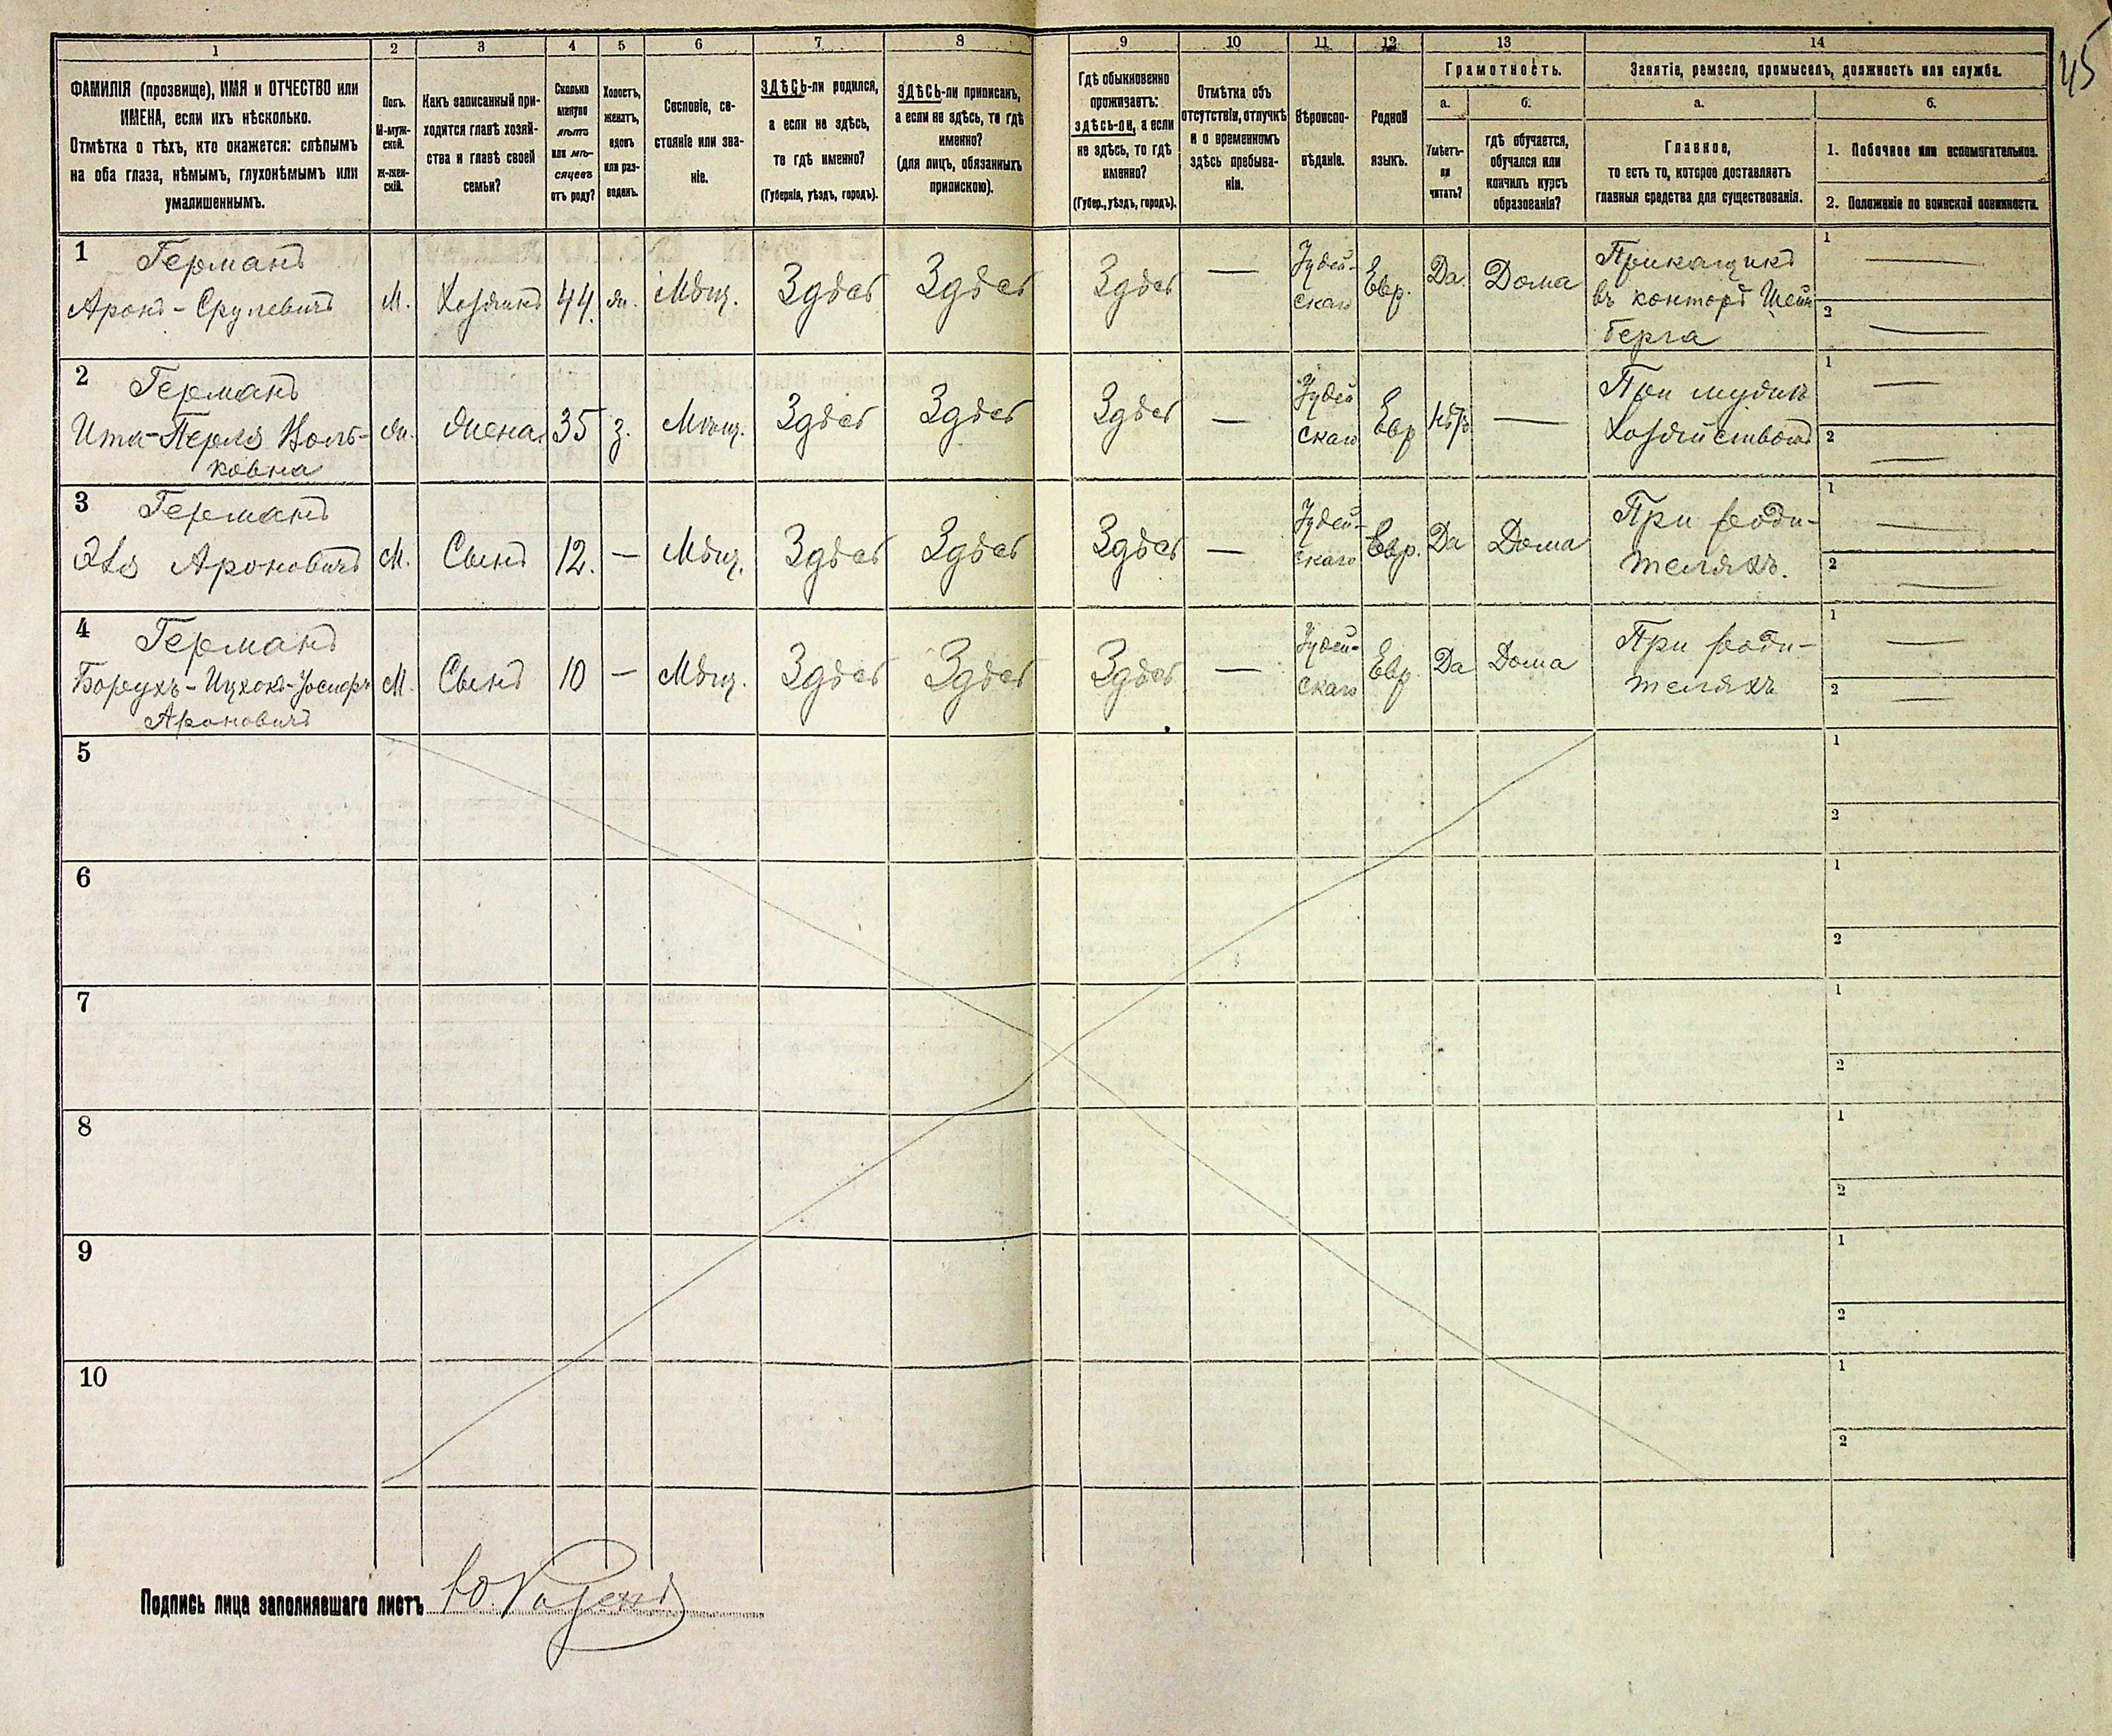 45
1 2 3 4 5 6 7 8 9 10 11 12 13 14
ФАМИЛІЯ (прозвище), ИМЯ и ОТЧЕСТВО или
ИМЕНА, если ихъ нѣсколько.
Отмѣтка о тѣхъ, кто окажется: слѣпымъ
на оба глаза, нѣмымъ, глухонѣмымъ или
умалишеннымъ.
Полъ.
М-муж-
ской.
Ж-жен-
скій.
Какъ записанный при-
ходится главѣ хозяй-
ства и главѣ своей
семьи?
Сколько
минуло
лѣтъ
или мѣ-
сяцевъ
отъ роду?
Холостъ,
женатъ,
вдовъ
или раз-
веденъ.
Сословіе, со-
стояніе или зва-
ніе.
ЗДѢСЬ-ли родился,
а если не здѣсь,
то гдѣ именно?
(Губернія, уѣздъ, городъ).
ЗДѢСЬ-ли приписанъ,
а если не здѣсь, то гдѣ
именно?
(для лицъ, обязанныхъ
припискою).
Гдѣ обыкновенно
проживаетъ:
здѣсь-ли, а если
не здѣсь, то гдѣ
именно?
(Губер., уѣздъ, городъ).
Отмѣтка объ
отсутствіи, отлучкѣ
и о временномъ
здѣсь пребыва-
ніи.
Вѣроиспо-
вѣданіе.
Родной
языкъ.
Грамотность.
а. б.
Умѣетъ-
ли
читать?
гдѣ обучается,
обучался или
кончилъ курсъ
образованія?
Занятіе, ремесло, промыселъ, должность или служба.
а. б.
Главное,
то есть то, которое доставляетъ
главныя средства для существованія.
1. Побочное или вспомогательное.
2. Положеніе по воинской повинности.
1 Германъ
Аронъ-Срулевичъ М. Хозяинъ 44. ж. Мѣщ. Здѣсь Здѣсь Здѣсь — Іудей-
скаго Евр. Да Дома Прикащикъ
въ конторѣ Шейн
берга
1 —
2 —
2 Германъ
Ита-Перля Воль-
ковна ж. Жена 35 з. Мѣщ. Здѣсь Здѣсь Здѣсь — Іудей
скаго Евр Нѣтъ — При мужѣ
Хозяйствомъ
1 —
2 —
3 Германъ
Эля Ароновичъ М. Сынъ 12. — Мѣщ. Здѣсь Здѣсь Здѣсь — Іудей-
скаго Евр. Да Дома При роди-
теляхъ.
1 —
2 —
4 Германъ
Борухъ-Ицхокъ-Іосифъ
Ароновичъ М. Сынъ 10 — Мѣщ. Здѣсь Здѣсь Здѣсь — Іудей-
скаго Евр. Да Дома При роди-
теляхъ
1 —
2 —
5 1
2
6 1
2
7 1
2
8 1
2
9 1
2
10 1
2
Подпись лица заполнявшаго листъ